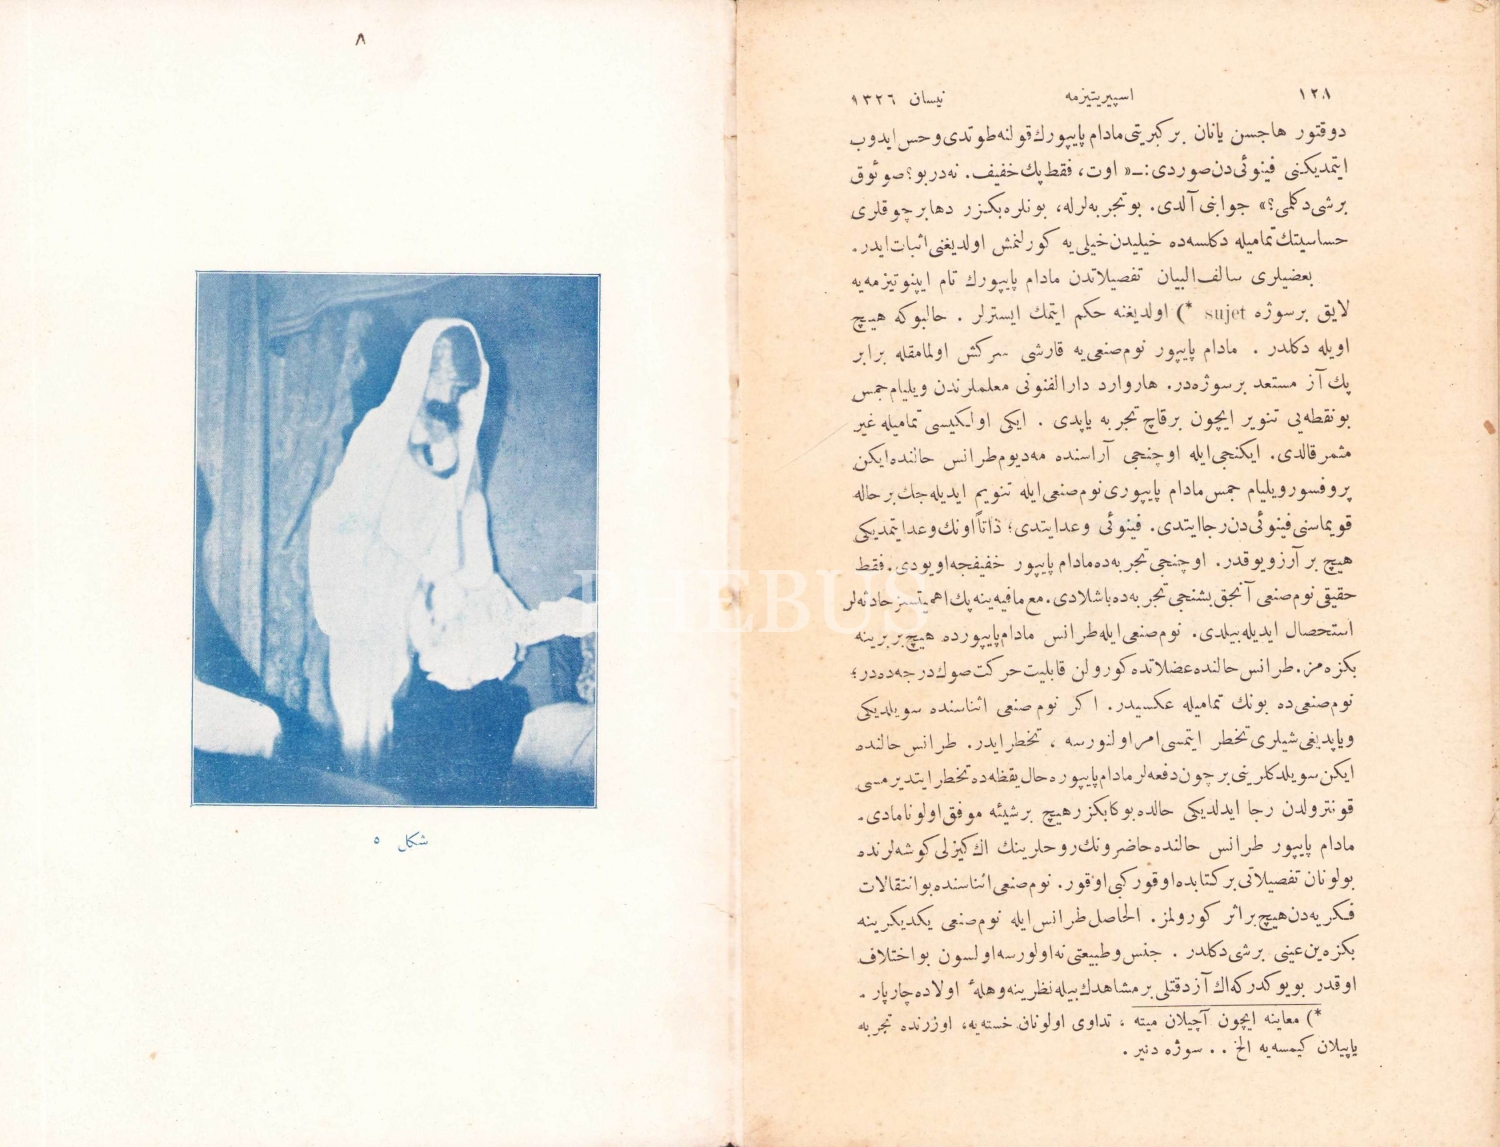 ٨
شكل ٥
١٢٨ اسپيريتيزمه نيسان ١٣٢٦
دوقتور هاجسن يانان بر كبريتى مادام پايپورك قولنه طوتدى وحس ايدوب
ايتمديكنى فينوئى دن صوردى :ــ « اوت ، فقط پك خفيف . نه در بو ؟ صوئوق
برشى دكلمى ؟ » جوابنى آلدى . بو تجربه لرله ، بونلره بكزر دها بر چوقلرى
حساسيتك تماميله دكلسه ده خيليدن خيلى يه كورلنمش اولديغنى اثبات ايدر .
بعضيلرى سالف البيان تفصيلاتدن مادام پايپورك تام ايپنوتيزمه يه
لايق برسوژه sujet *) اولديغنه حكم ايتمك ايسترلر . حالبوكه هيچ
اويله دكلدر . مادام پايپور نوم صنعى يه قارشى سركش اولمامقله برابر
پك آز مستعد برسوژه در . هاروارد دارالفنونى معلملرندن ويليام جمس
بونقطه يى تنوير ايچون برقاچ تجربه ياپدى . ايكى اولكيسى تماميله غير
مثمر قالدى . ايكنجى ايله اوچنجى آراسنده مه ديوم طرانس حالنده ايكن
پروفسور ويليام جمس مادام پايپورى نوم صنعى ايله تنويم ايديله جك بر حاله
قويماسنى فينوئى دن رجا ايتدى . فينوئى وعد ايتدى ؛ ذاتاً اونك وعد ايتمديكى
هيچ بر آرزو يوقدر . اوچنجى تجربه ده مادام پايپور خفيفجه اويودى . فقط
حقيقى نوم صنعى آنجق بشنجى تجربه ده باشلادى . مع مافيه ينه پك اهميتسز حادثه لر
استحصال ايديله بيلدى . نوم صنعى ايله طرانس مادام پايپورده هيچ بربرينه
بكزه مز . طرانس حالنده عضلاتده كورولن قابليت حركت صوك درجه ده در ؛
نوم صنعى ده بونك تماميله عكسيدر . اكر نوم صنعى اثناسنده سويلديكى
وياپديغى شيلرى تخطر ايتمسى امر اولنورسه ، تخطر ايدر . طرانس حالنده
ايكن سويلدكلرينى بر چون دفعه لر مادام پايپوره حال يقظه ده تخطر ايتديرمسى
قونترولدن رجا ايدلديكى حالده بوكا بكزر هيچ برشيئه موفق اولونامادى .
مادام پايپور طرانس حالنده حاضرونك روحلرينك اك كيزلى كوشه لرنده
بولونان تفصيلاتى بر كتابده اوقور كبى اوقور . نوم صنعى اثناسنده بو انتقالات
فكريه دن هيچ بر اثر كورولمز . الحاصل طرانس ايله نوم صنعى يكديكرينه
بكزه ين عينى برشى دكلدر . جنس وطبيعتى نه اولورسه اولسون بو اختلاف
اوقدر بويوكدر كه اك آز دقتلى بر مشاهدك بيله نظرينه وهلهٔ اولاده چارپار .
*) معاينه ايچون آچيلان ميته ، تداوى اولونان خسته يه ، اوزرنده تجربه
ياپيلان كيمسه يه الخ . . سوژه دنير .
PHEBUS